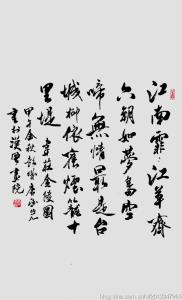 江雨霏霏江草齊
六朝如夢鳥空
啼無情最是台
城柳依舊煙籠十
里堤 韋莊金陵圖
甲午金秋彭城唐
書於漢風畫院